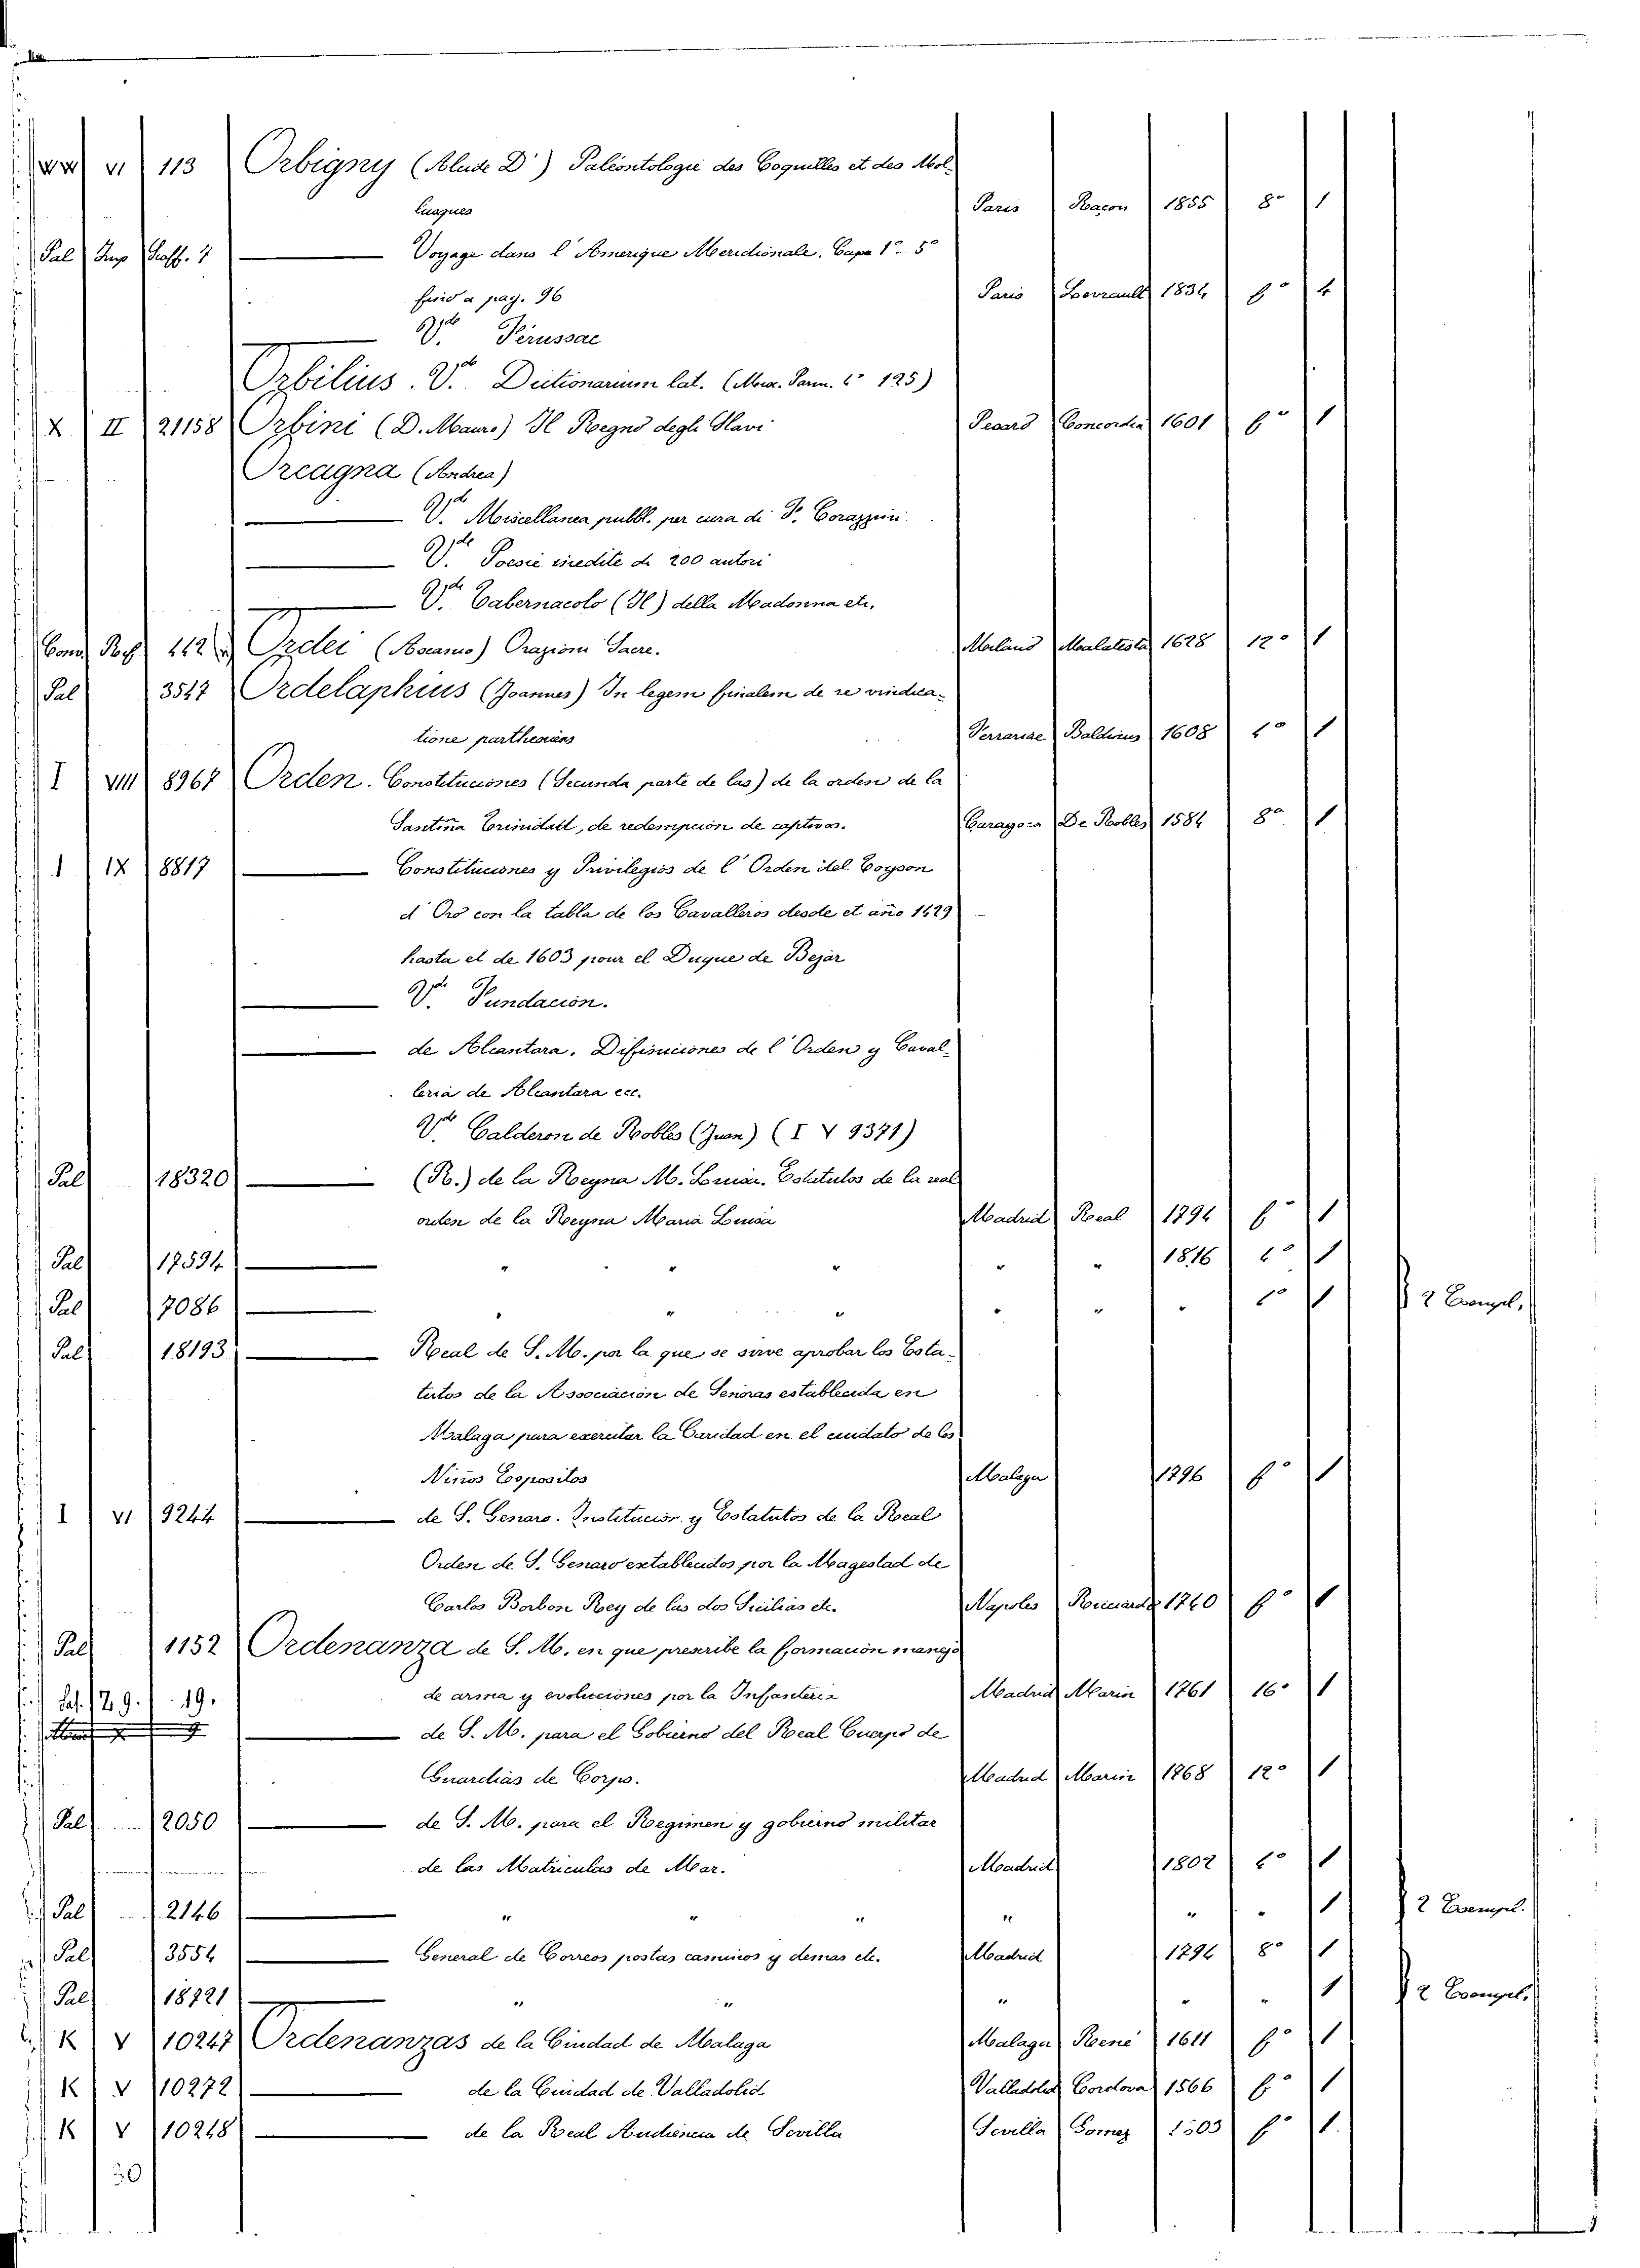 VI 113 Orbigny (Alcide D') Paléontologie des Coquilles et des Mol-
lusques Paris Raçon 1855 8° 1
Pal Imp Scaff. 7 Voyage dans l'Amerique Meridionale. Capo 1° - 5°
finio a pag. 96 Paris Levrault 1834 f° 4
Vde Férussac
Orbilius. Vde Dictionarium lat. (Mor. Parm. 4° 125)
X II 21158 Orbini (D. Mauro) Il Regno degli Slavi Pesaro Concordia 1601 f° 1
Orcagna (Andrea)
Vde Miscellanea pubbl. per cura di F. Corazzini
Vde Poesie inedite di 200 autori
Vde Tabernacolo (Il) della Madonna etc.
112 Ordei (Ascanio) Orazioni Sacre. Milano Malatesta 1628 12° 1
Pal 3517 Ordelaphius (Joannes) In legem finalem de rei vindica-
tione parthesiens Ferrariae Baldinus 1608 4° 1
I VIII 8967 Orden. Constituciones (Secunda parte de las) de la orden de la
Santiña Trinidatt, de redempcion de captivos. Caragoza De Robles 1584 8° 1
I IX 8817 Constituciones y Privilegios de l'Orden del Toyson
d'Oro con la tabla de los Cavalleros desde et año 1429
hasta el de 1603 pour el Duque de Bejar
Vde Fundacion.
de Alcantara. Difiniciones de l'Orden y Caval-
leria de Alcantara ecc.
Vde Calderon de Robles (Juan) (I V 9371)
Pal 18320 (R.) de la Reyna M. Louisa. Estatutos de la real
orden de la Reyna Maria Louisa Madrid Real 1794 f° 1
Pal 17594 " " " " " 1816 4° 1
Pal 7086 " " " " " " 4° 1 2 Exempl.
Pal 18193 Real de S. M. por la que se sirve aprobar los Esta-
tutos de la Associacion de Senoras establecida en
Malaga para exercitar la Caridad en el cuidato de los
Niños Expositos Malaga 1796 f° 1
I VI 9244 de S. Genaro. Institucion y Estatutos de la Real
Orden de S. Genaro establecidos por la Magestad de
Carlos Borbon Rey de las dos Sicilias etc. Napoles Ricciardo 1740 f° 1
Pal 1152 Ordenanza de S. M. en que prescribe la formacion manejo
de arma y evoluciones por la Infanteria Madrid Marin 1761 16° 1
29. 19.
de S. M. para el Gobierno del Real Cuerpo de
Guardias de Corps. Madrid Marin 1768 12° 1
Pal 2050 de S. M. para el Regimen y gobierno militar
de las Matriculas de Mar. Madrid 1802 4° 1
Pal 2146 " " " " " " 1 2 Exempl.
Pal 3554 General de Correos postas caminos y demas etc. Madrid 1794 8° 1
Pal 18721 " " " " " 1 2 Exempl.
K V 10247 Ordenanzas de la Ciudad de Malaga Malaga René 1611 f° 1
K V 10272 de la Ciudad de Valladolid Valladolid Cordova 1566 f° 1
K V 10248 de la Real Audiencia de Sevilla Sevilla Gomez 1603 f° 1.
30